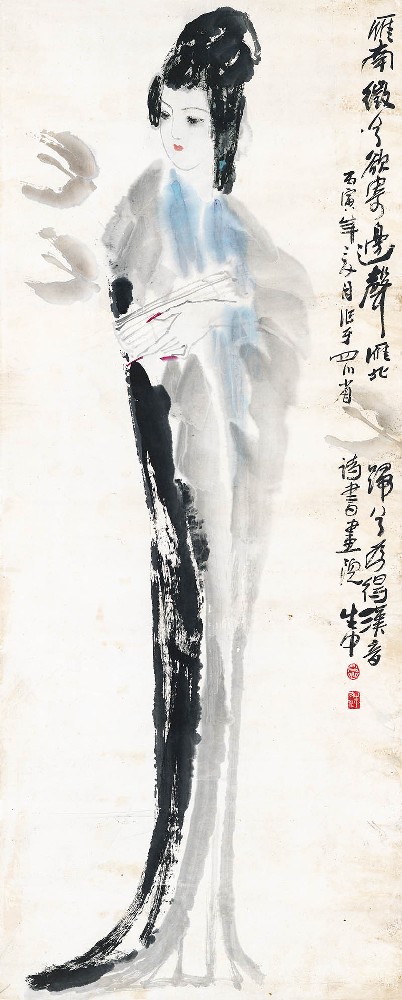 雁南徵兮欲寄邊聲雁北歸兮為得漢音
丙寅年三月作于四川省詩書畫院生中